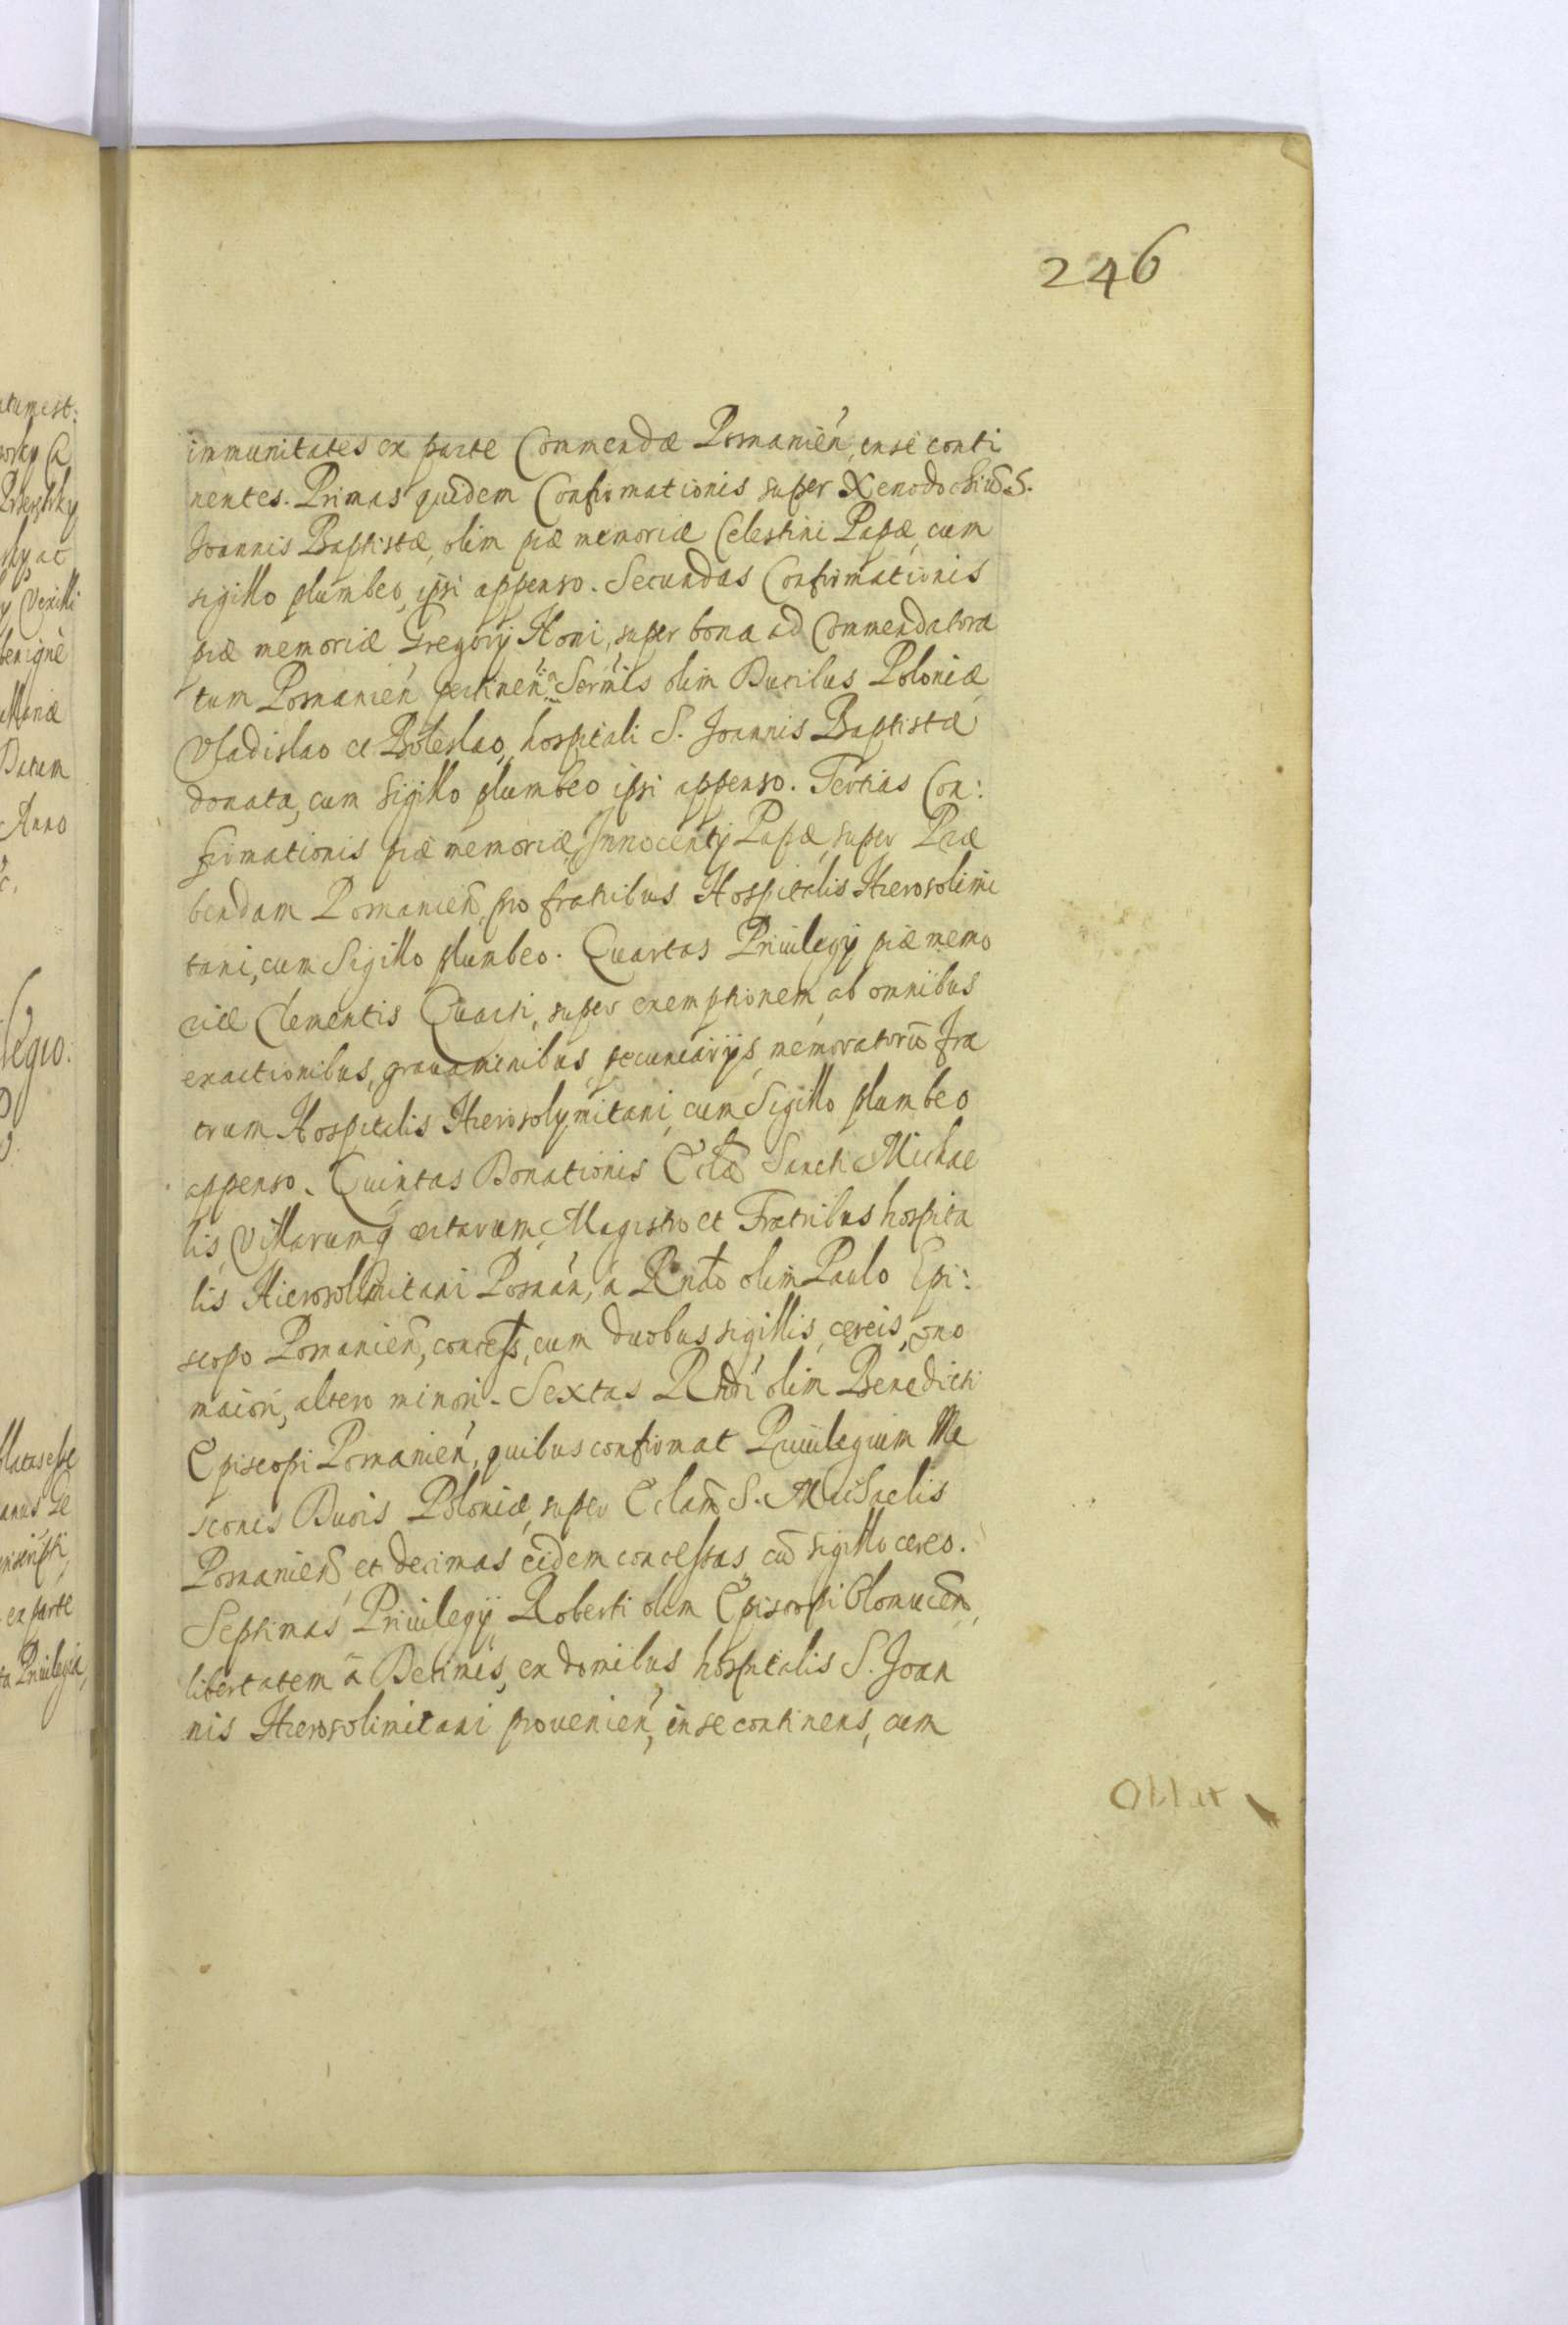 246
immunitates ex parte Commendæ Posnanień, in se conti
nentes. Primas quidem Confirmationis super Xenodochiū S.
Joannis Baptistæ, olim piæ memoriæ Celestini Papæ, cum
sigillo plumbeo, ipsi appenso. Secundas Confirmationis
piæ memoriæ Gregorij Noni, super bona ad Commendatora
tum Posnanień pertineń Sermis olim Ducibus Poloniæ
Vladislao et Boleslao, hospitali S. Joannis Baptistæ
donata, cum sigillo plumbeo ipsi appenso. Tertias Con:
firmationis piæ memoriæ Innocentij Papæ, super Præ
bendam Posnanień, pro fratribus Hospitalis Hierosolimi
tani, cum Sigillo plumbeo. Quartas Priuilegij piæ memo
riæ Clementis Quarti, super exemptionem ab omnibus
exactionibus, grauaminibus pecuniarijs memoratorū fra
trum Hospitalis Hierosolymitani, cum Sigillo plumbeo
appenso. Quintas Donationis Eclæ Sancti Michae
lis, Villarumq certarum, Magistro et Fratribus hospita
lis Hierosollmitani Posnań, á Rndo olim Paulo Epi:
scopo Posnanień, concess, cum duobus sigillis, cereis, uno
maiori, altero minori. Sextas Rndi olim Benedicti
Episcopi Posnanień, quibus confirmat Priuilegium Me
sconis Ducis Poloniæ, super Eclam S. Michaelis
Posnanień et decimas eidem concessas, cū sigillo cereo.
Septimas Priuilegij Roberti olim Episcopi Olomuceñ,
libertatem á Decimis, ex domibus hospitalis S. Joan
nis Hierosolimitani prouenień, in se continens, cum
Oblat